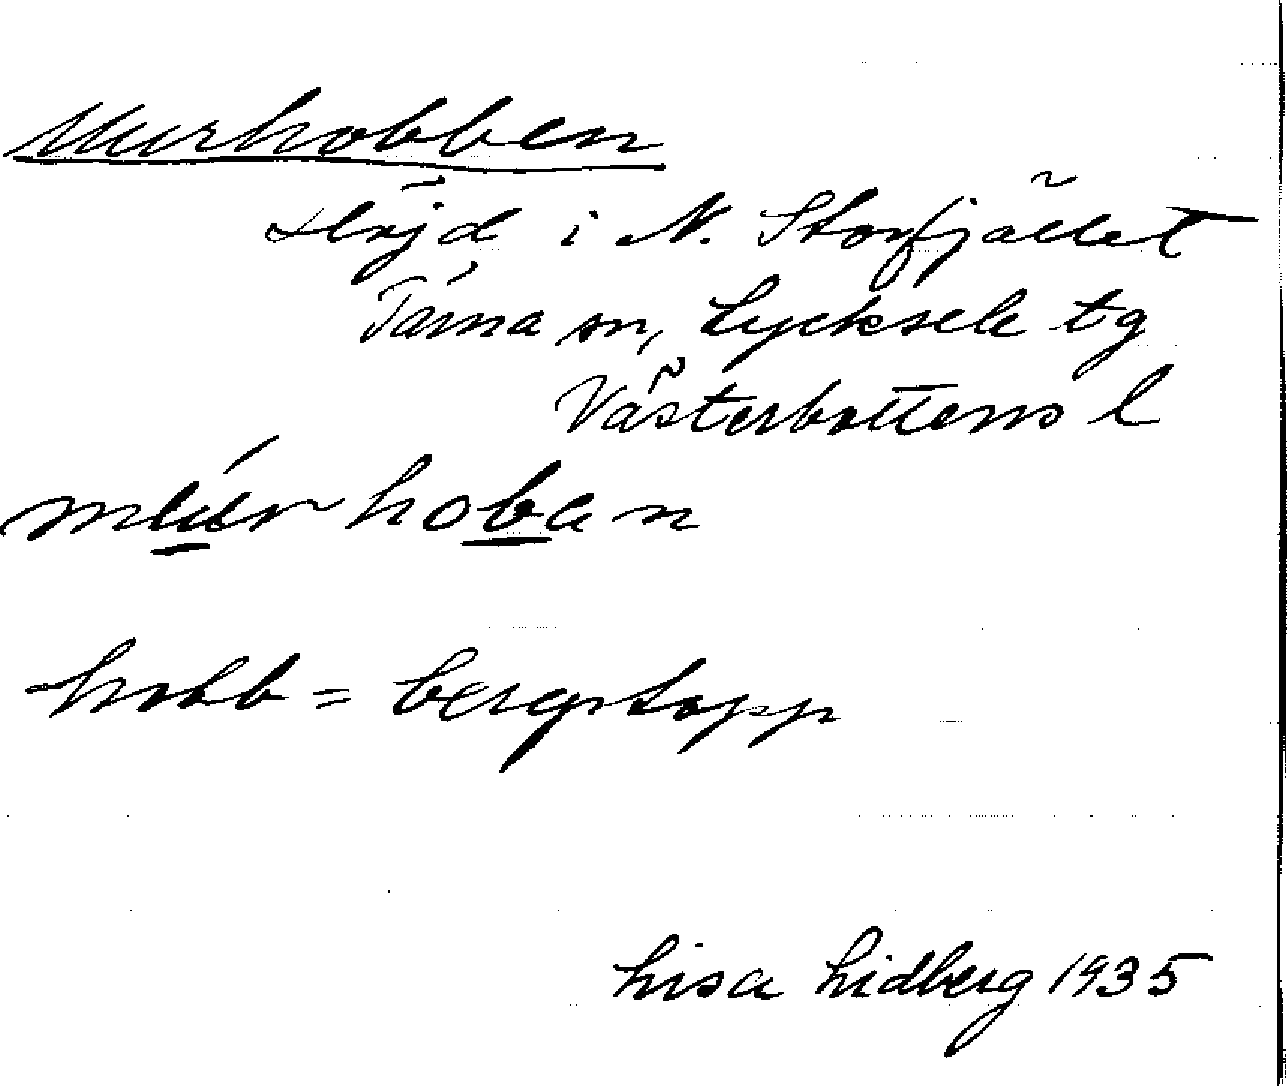 Murhobben
Höjd i N. Storfjället
Tärna sn, Lycksele tg
Västerbottens l
hoban
hobb = bergstopp
Lisa Lidberg 1935